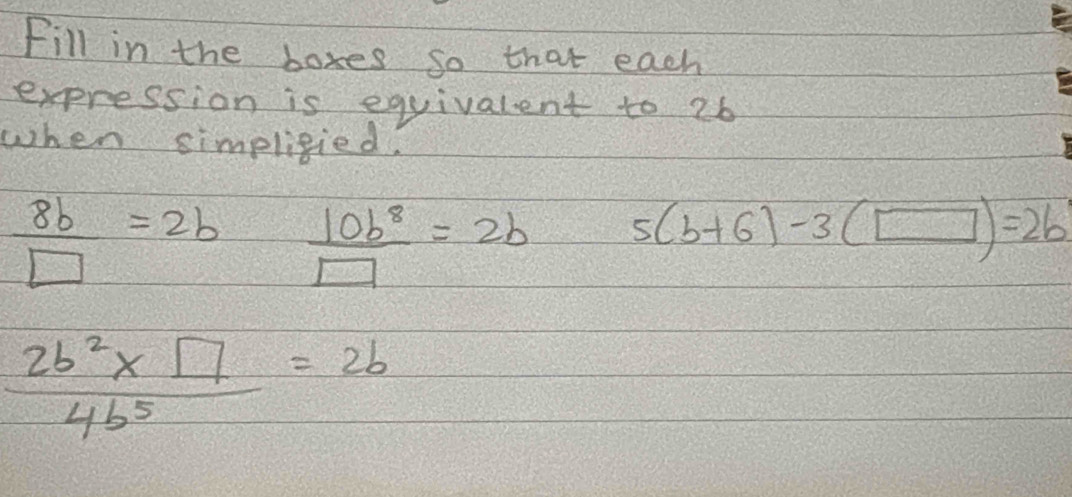 Fill in the boxes so that each
expression is equivalent to 2b
when simpligied.
8b/□ = 2b 10b⁸/□ = 2b 5(b+6)-3(□)=2b
(2b² x □)/4b⁵ = 2b